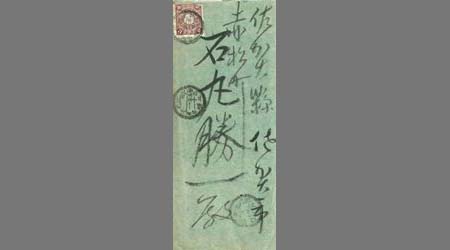 佐賀縣佐賀市
赤松町
石丸勝一殿